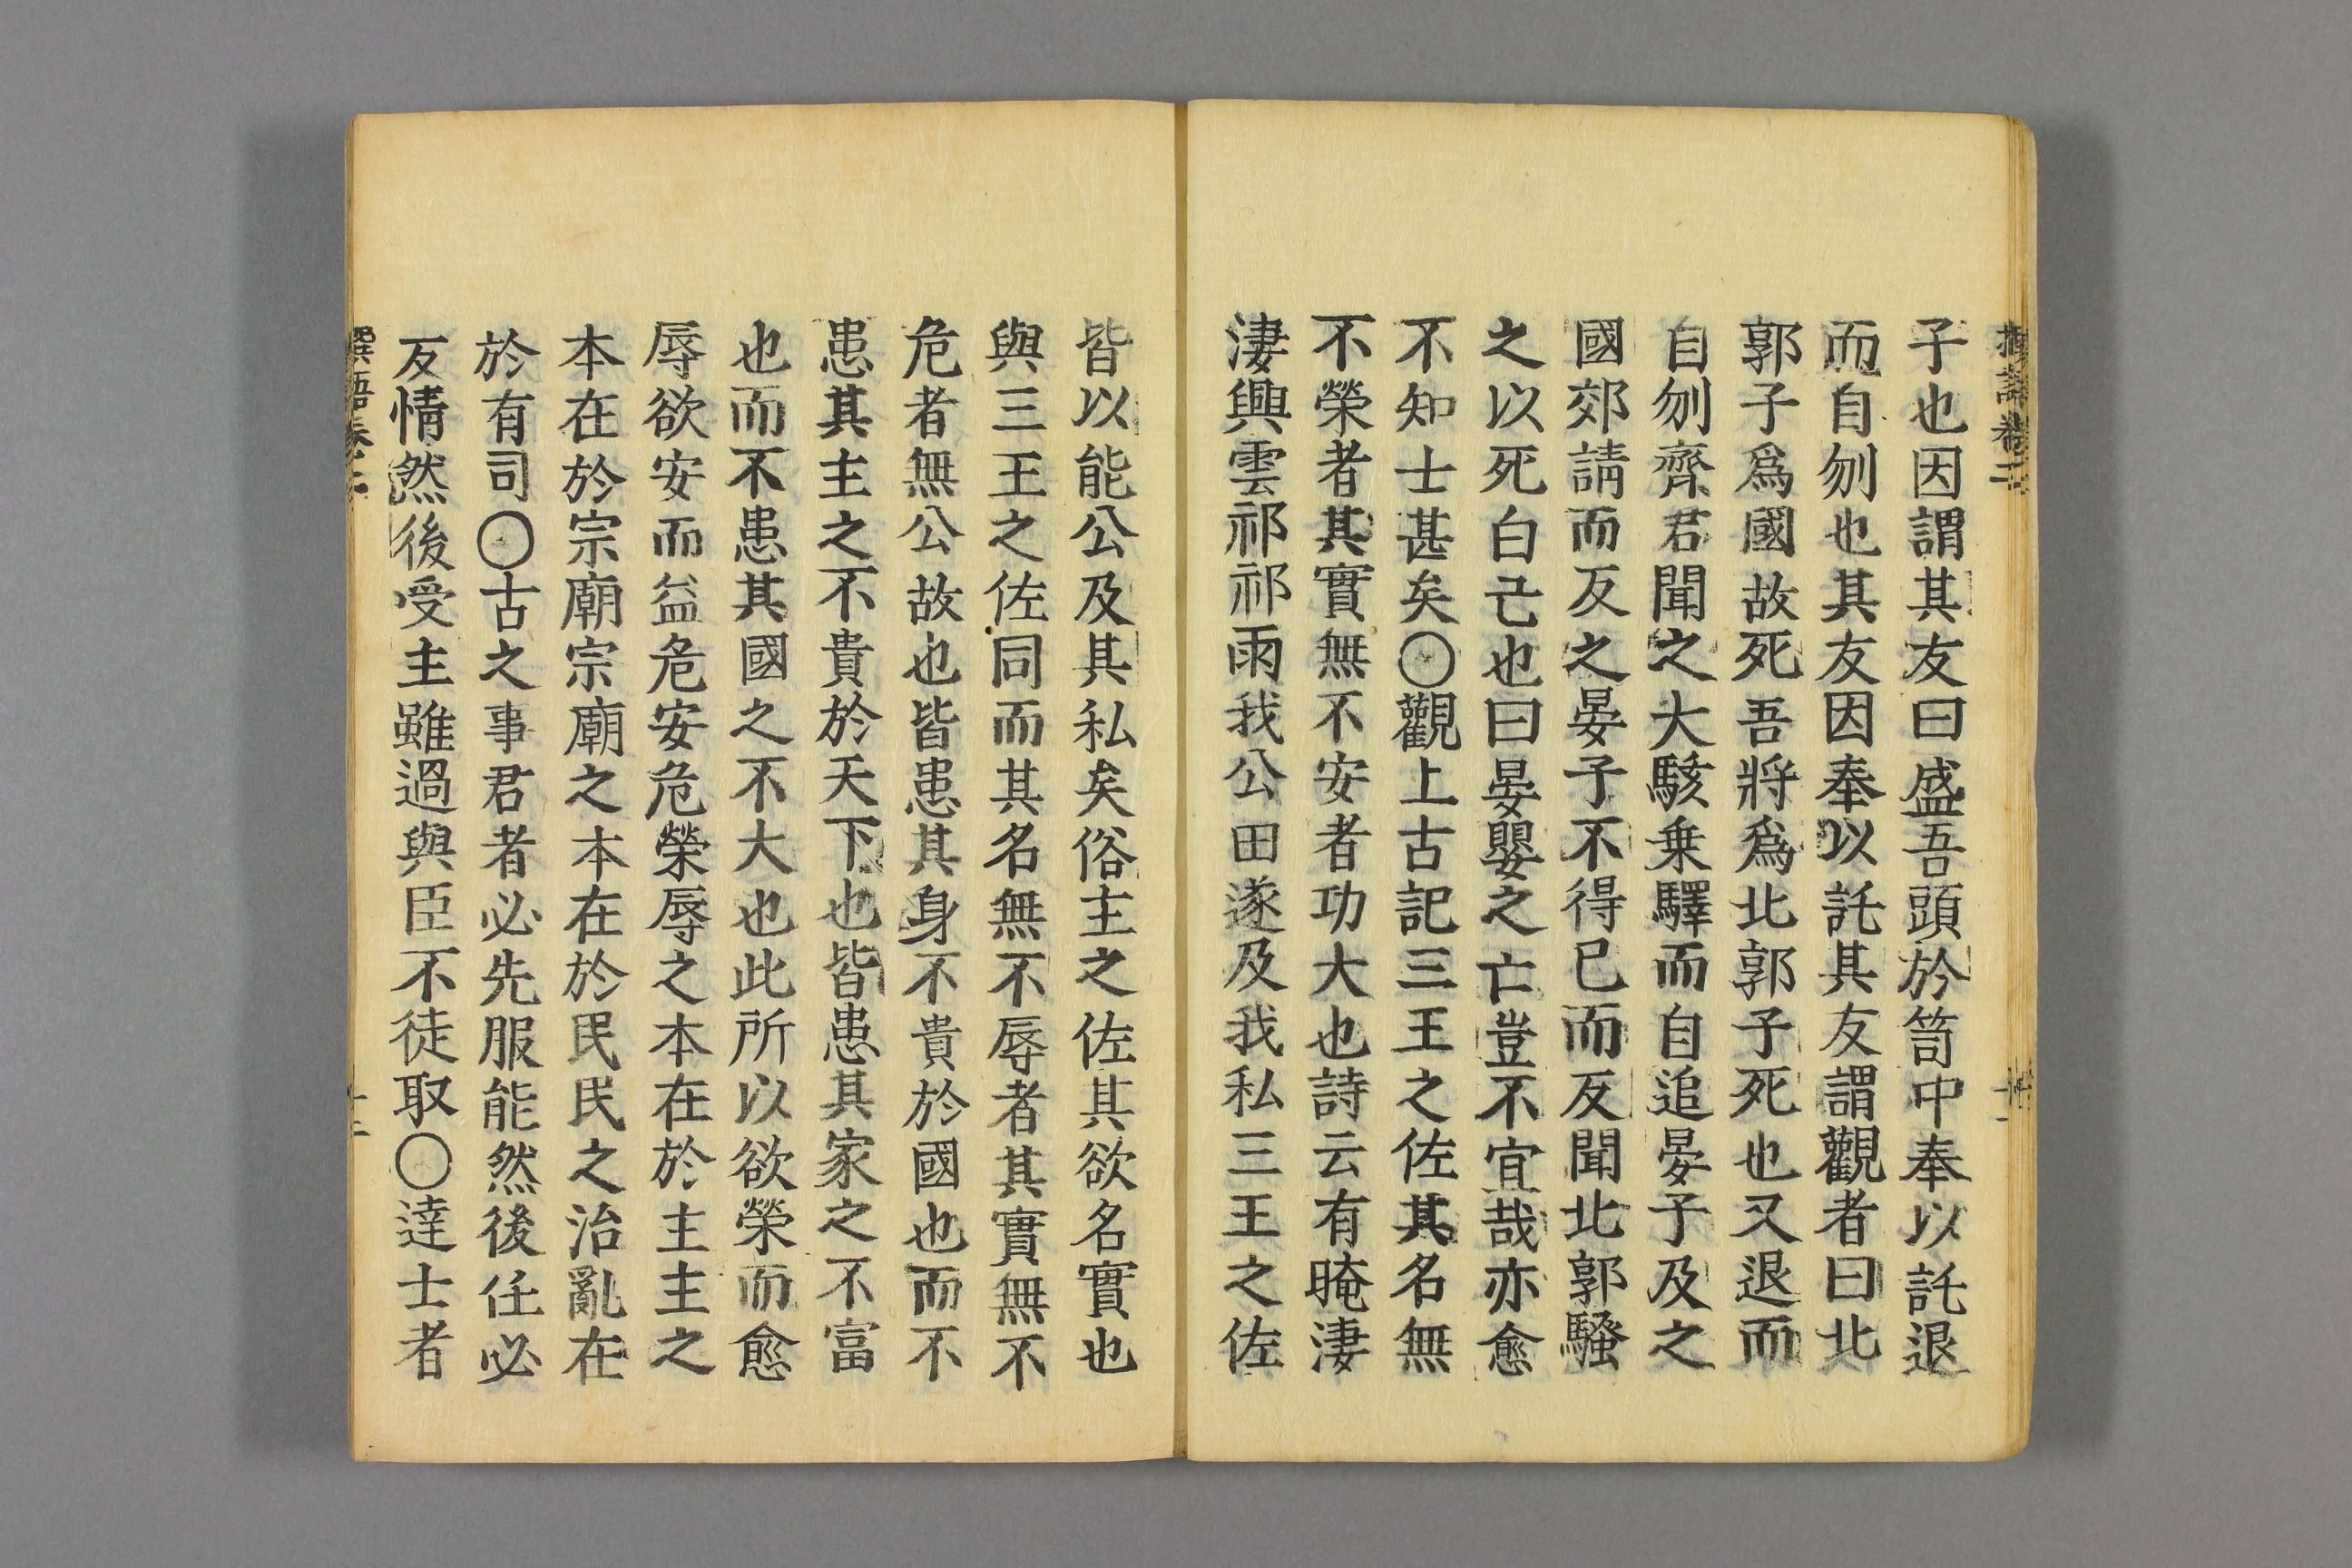 子也因謂其友曰盛吾頭於笥中奉以託退
而自刎也其友因奉以託其友謂觀者曰北
郭子爲國故死吾將爲北郭子死也又退而
自刎齊君聞之大駭乗驛而自追晏子及之
國郊請而反之晏子不得已而反聞北郭騷
之以死白己也曰晏嬰之亡豈不宜哉亦愈
不知士甚矣〇觀上古記三王之佐其名無
不榮者其實無不安者功大也詩云有晻淒
淒興雲祁祁雨我公田遂及我私三王之佐
皆以能公及其私矣俗主之佐其欲名實也
與三王之佐同而其名無不辱者其實無不
危者無公故也皆患其身不貴於國也而不
患其主之不貴於天下也皆患其家之不富
也而不患其國之不大也此所以欲榮而愈
辱欲安而益危安危榮辱之本在於主主之
本在於宗廟宗廟之本在於民民之治亂在
於有司〇古之事君者必先服能然後任必
反情然後受主雖過與臣不徒取〇達士者